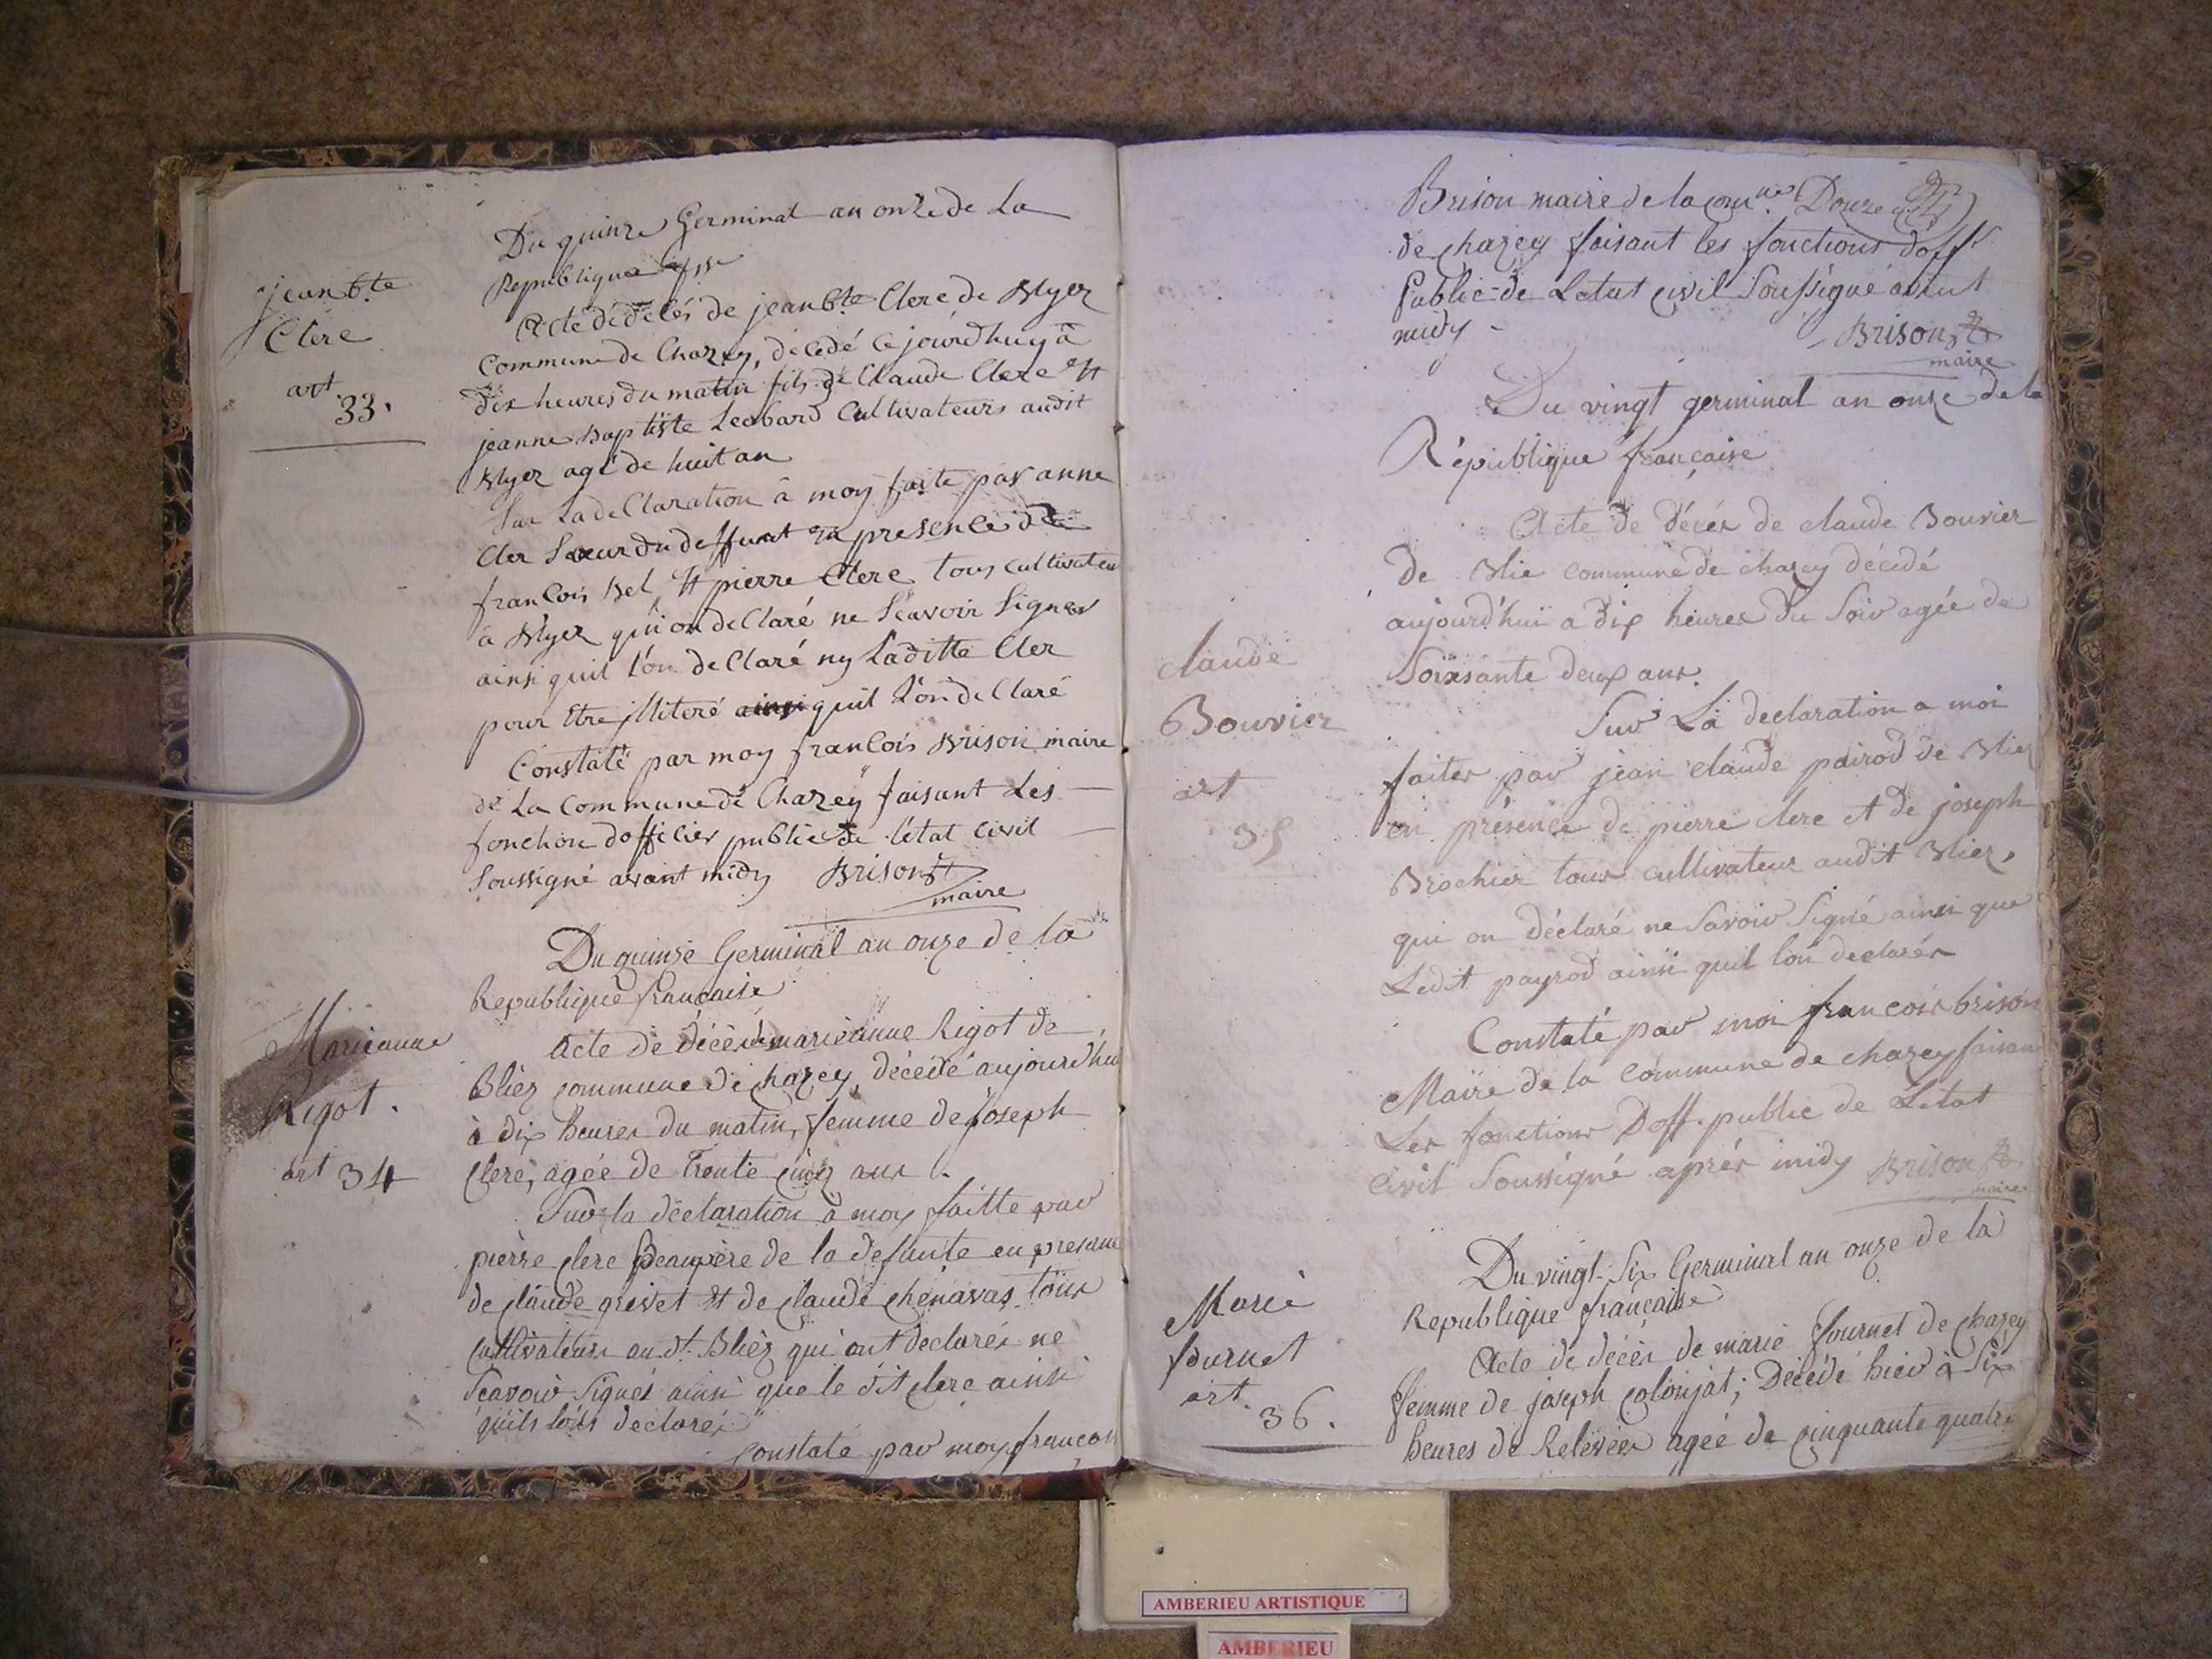 Du quinze Germinal an onze de La
Republique fse
jean bte
Clere
art
33.
Acte de decés de jean bte Clere de Blyez
Commune de Chazey, décedé ce jourdhuy à
dix heures du matin fils de Claude Clere et
jeanne Baptiste Leobard Cultivateurs audit
Blyez agé de huit an
Sur La deClaration â moy faite par anne
Cler Soeur du deffunt en presence de
francois Bel et pierre Clere tous cultivateu
a Blyez qui on deClaré ne Scavoir Signer
ainsi quil l'on deClaré ny Laditte Cler
pour Etre jlliteré ainsi quil L'on deClaré
Constaté par moy francois Brison maire
de La Commune de Chazey faisant Les
fonction dofficier public de l'état Civil
Soussigné avant midy Brison
maire
Du quinze Germinal an onze de la
Republique française
Marieanne
Rigot.
art 34
Acte de décès de marieanne Rigot de
Bliez commune de chazey, décédé aujourd'hui
à dix heures du matin, femme de Joseph
Clere, agée de trente cinq ans.
Sur la déclaration à moy faitte par
pierre clere Beaupère de la defunte en presance
de claude grivet et de claude chenavas tous
cultivateurs au dt. Bliez qui ont declarés ne
Scavoir Signés ainsi que le dit clere ainsi
qu'ils lois declarés
constaté par moy françois
Brison maire de la comne. Douze
de chazey faisant les fonctions d'offr.
Public de Letat civil Soussigné avant
midy
Brison
maire
Du vingt germinal an onze de la
République française
Acte de décés de claude Bouvier
de Blie commune de chazey décédé
aujourd'hui a dix heures du Soir agée de
Soixsante deux ans.
claude
Bouvier
art
35
Sur La declaration a moi
faites par jean claude pairod de Bliez
en présence de pierre clere et de joseph
Brochier tous cultivateur audit Bliez,
qui on déclaré ne Savoir Signé ainsi que
Ledit payrod ainsi quil l'on declarés
Constaté par moi francois brison
Maire de la commune de chazey faisan
Les fonctions D'off. public de Letat
Civil Soussigné aprés midy Brison
maire
Du vingt Six Germinal an onze de la
Republique française
Marie
fournet
art.
36.
Acte de décès de marie fournet de chazey
femme de joseph colonjat; Décédé hier à Six
heures de Relevées agée de cinquante quatre
AMBERIEU ARTISTIQUE
AMBERIEU